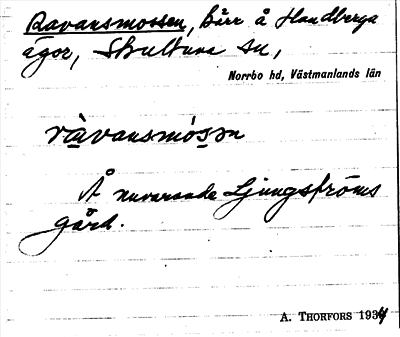 Ravansmossen, kärr å Handberga
ägor, Skultuna sn,
Norrbo hd, Västmanlands län
ràvansmós̲ən
Å nuvarande Ljungströms
gård.
A. THORFORS 1934